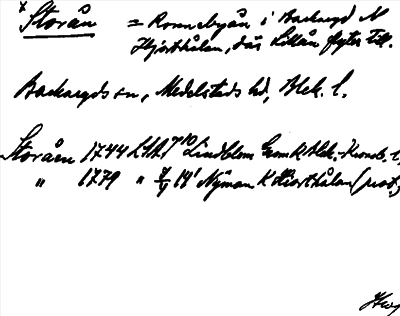 x
Storån = Ronnebyån i Backaryd N
Hjorthålan, där Lillån flyter till.
Backaryds sn, Medelstads hd, Blek. l.
Storån 1744 LSA Lindblom Geom K Blek.-Kronob. l.
" 1779 " Nyman K Hiorthålan (prot.)